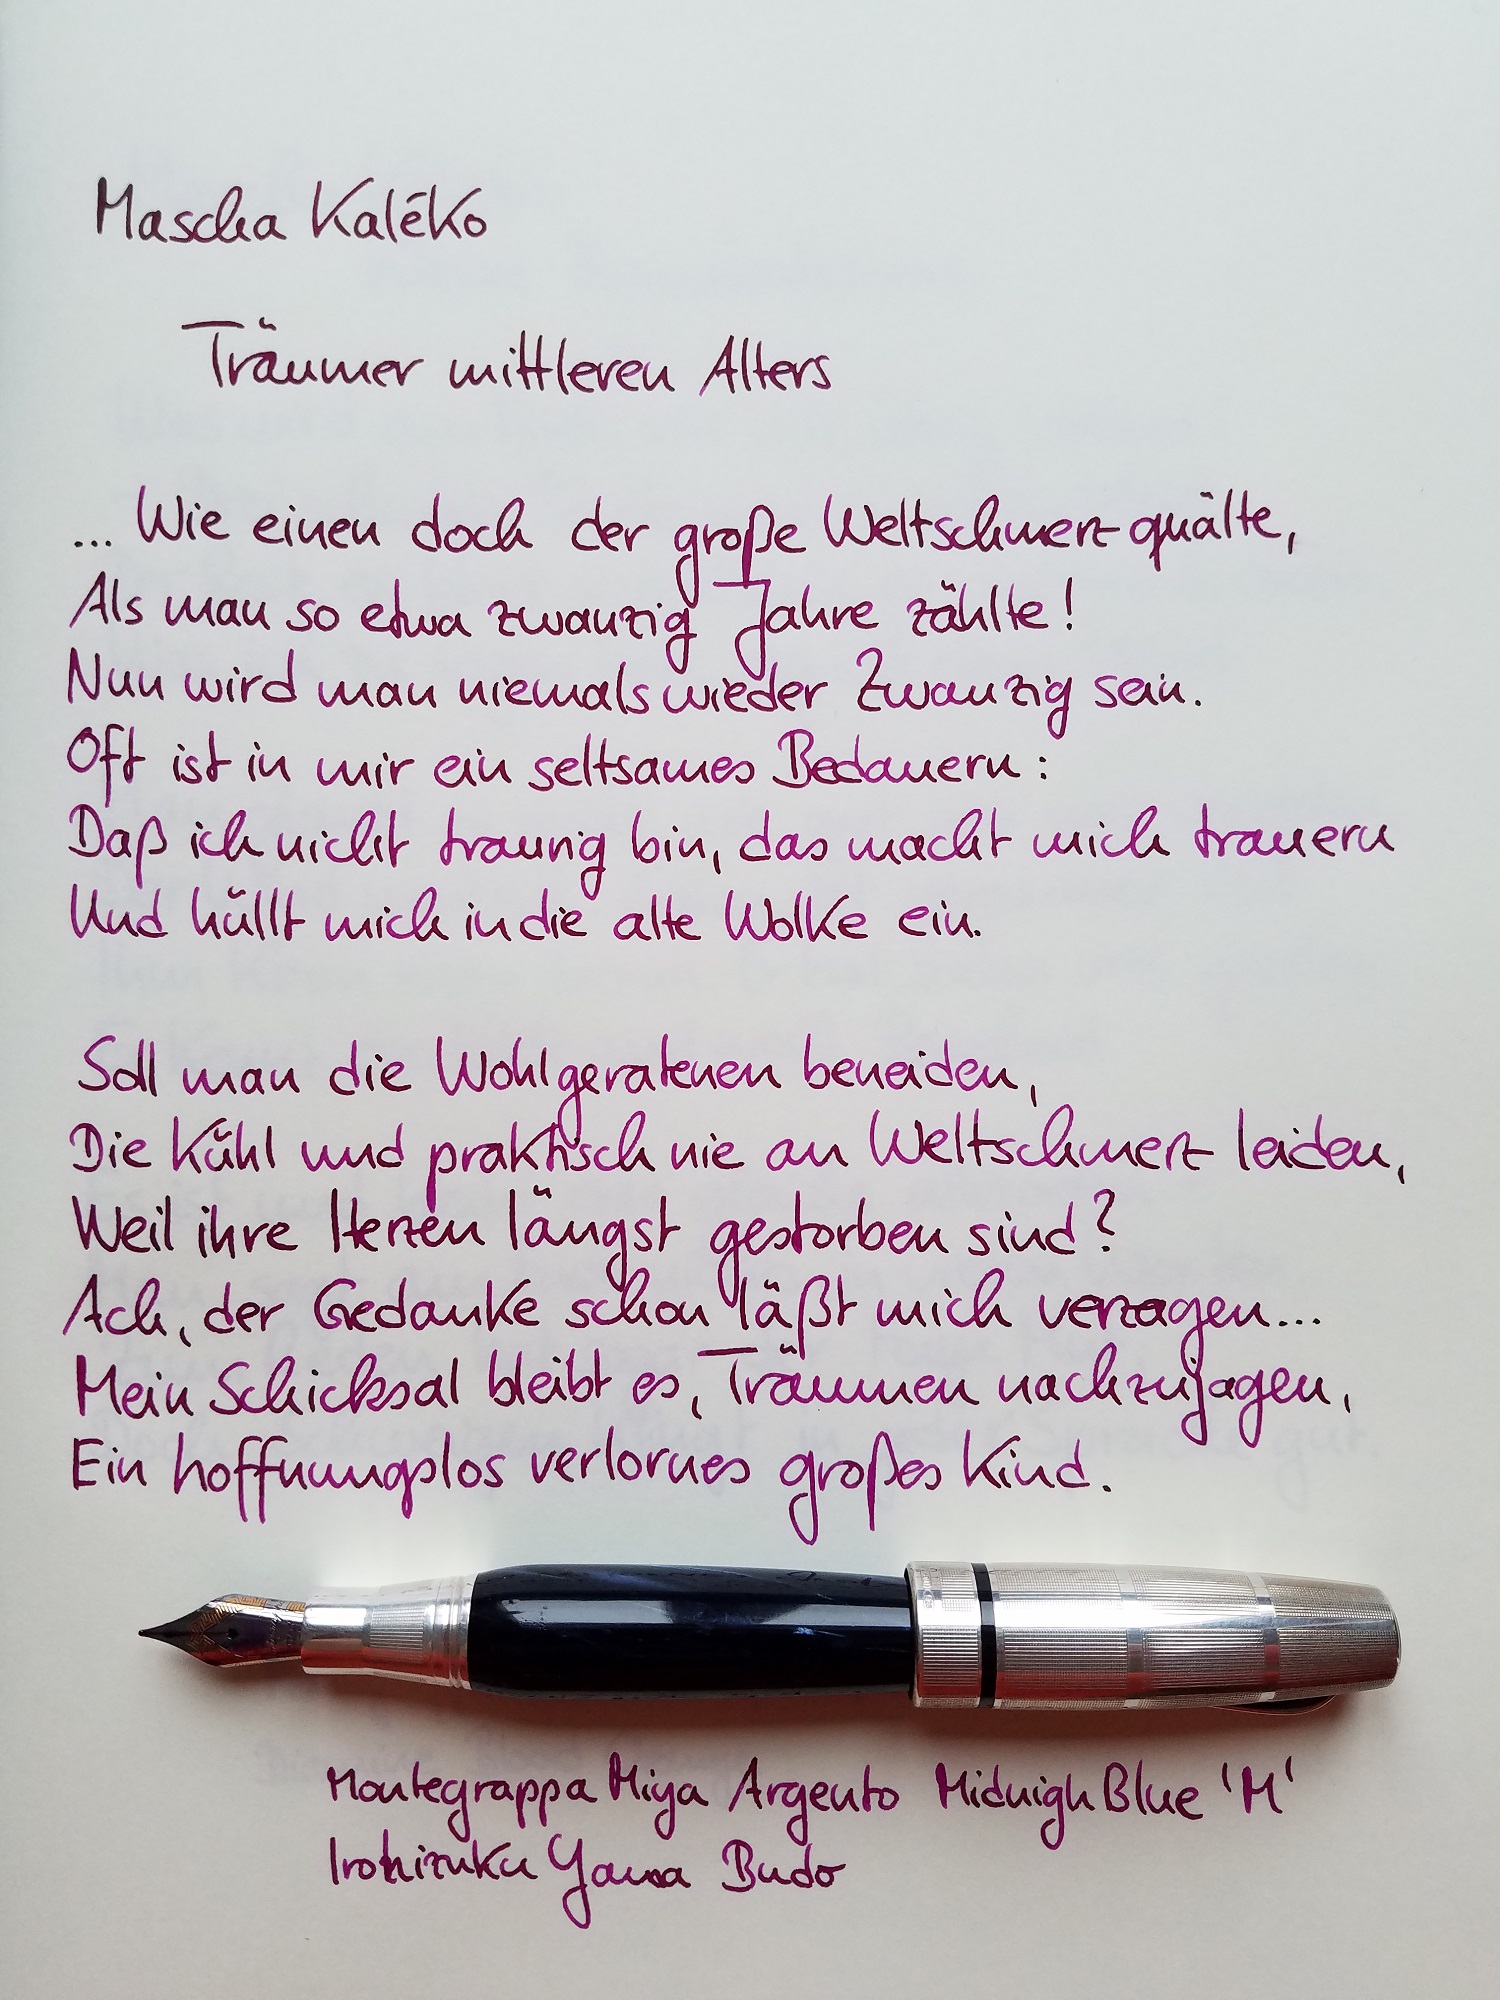 Mascha Kaléko
Träumer mittleren Alters
... Wie einen doch der große Weltschmerz quälte,
Als man so etwa zwanzig Jahre zählte!
Nun wird man niemals wieder Zwanzig sein.
Oft ist in mir ein seltsames Bedauern:
Daß ich nicht traurig bin, das macht mich trauern
Und hüllt mich in die alte Wolke ein.
Soll man die Wohlgeratenen beneiden,
Die kühl und praktisch nie an Weltschmerz leiden,
Weil ihre Herzen längst gestorben sind?
Ach, der Gedanke schon läßt mich verzagen...
Mein Schicksal bleibt es, Träumen nachzujagen,
Ein hoffnungslos verlornes großes Kind.
Montegrappa Miya Argento Midnigh Blue 'M'
Iroshizuku Yama Budo